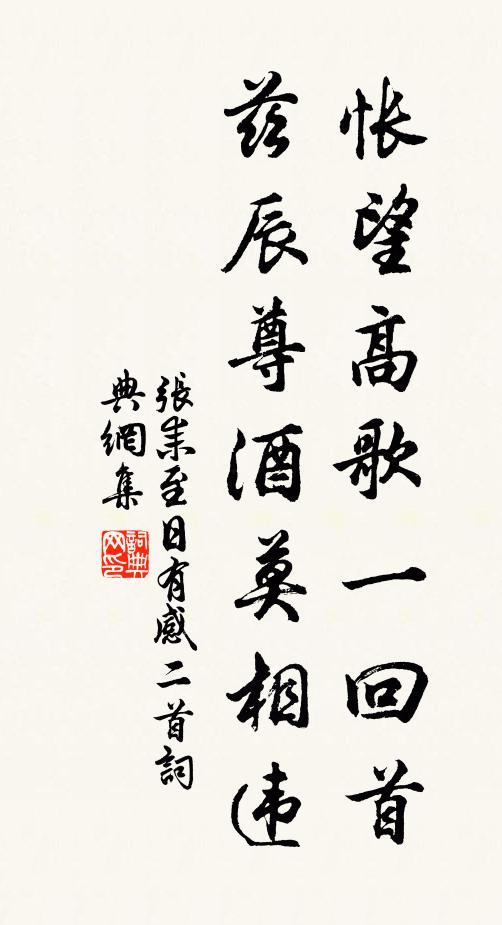 怅望高歌一回首
兹辰尊酒莫相违
張耒至日有感二首詞
典網集
詞典
网印